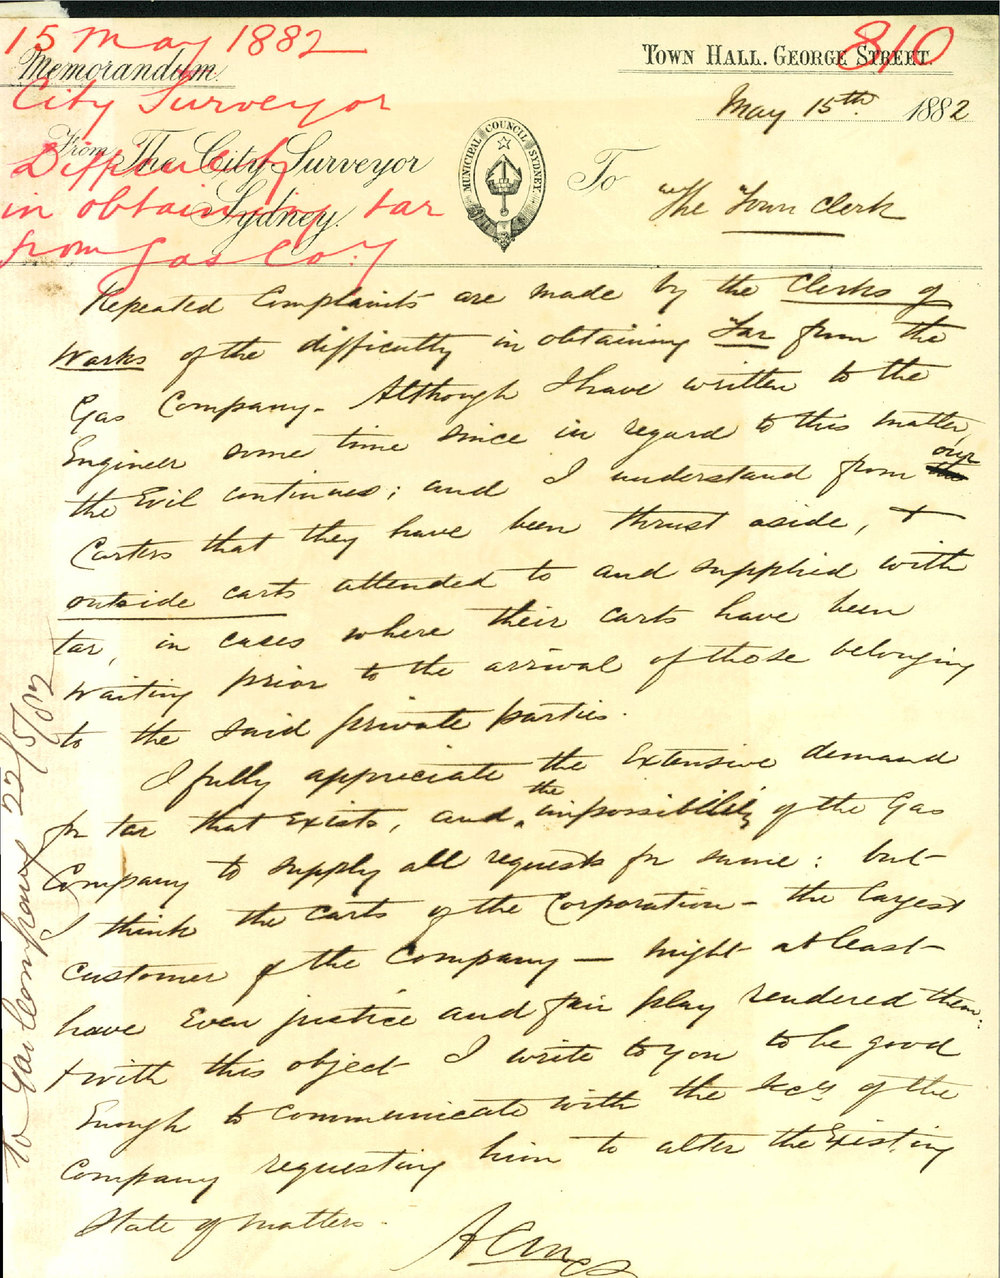 15 May 1882
City Surveyor
Difficulty
in obtaining tar
from Gas Coy
810
Memorandum
TOWN HALL. GEORGE STREET
May 15th 1882
From The City Surveyor
Sydney.
MUNICIPAL COUNCIL SYDNEY.
To
The Town Clerk
Repeated Complaints are made by the Clerks of
Works of the difficulty in obtaining Tar from the
Gas Company. Although I have written to the
Engineer some time since in regard to this matter,
the Evil continues; and I understand from our
Carters that they have been thrust aside, &
outside carts attended to and supplied with
tar, in cases where their carts have been
waiting prior to the arrival of those belonging
to the said private parties.
I fully appreciate the Extensive demand
for tar that Exists, and the impossibility of the Gas
Company to supply all requests for same: but
I think the Carts of the Corporation – the largest
Customer of the Company — might at least
have Even justice and fair play rendered them:
& with this object I write to you to be good
Enough to communicate with the Secy of the
Company requesting him to alter the Existing
State of matters.
To Gas Company 22/5/82